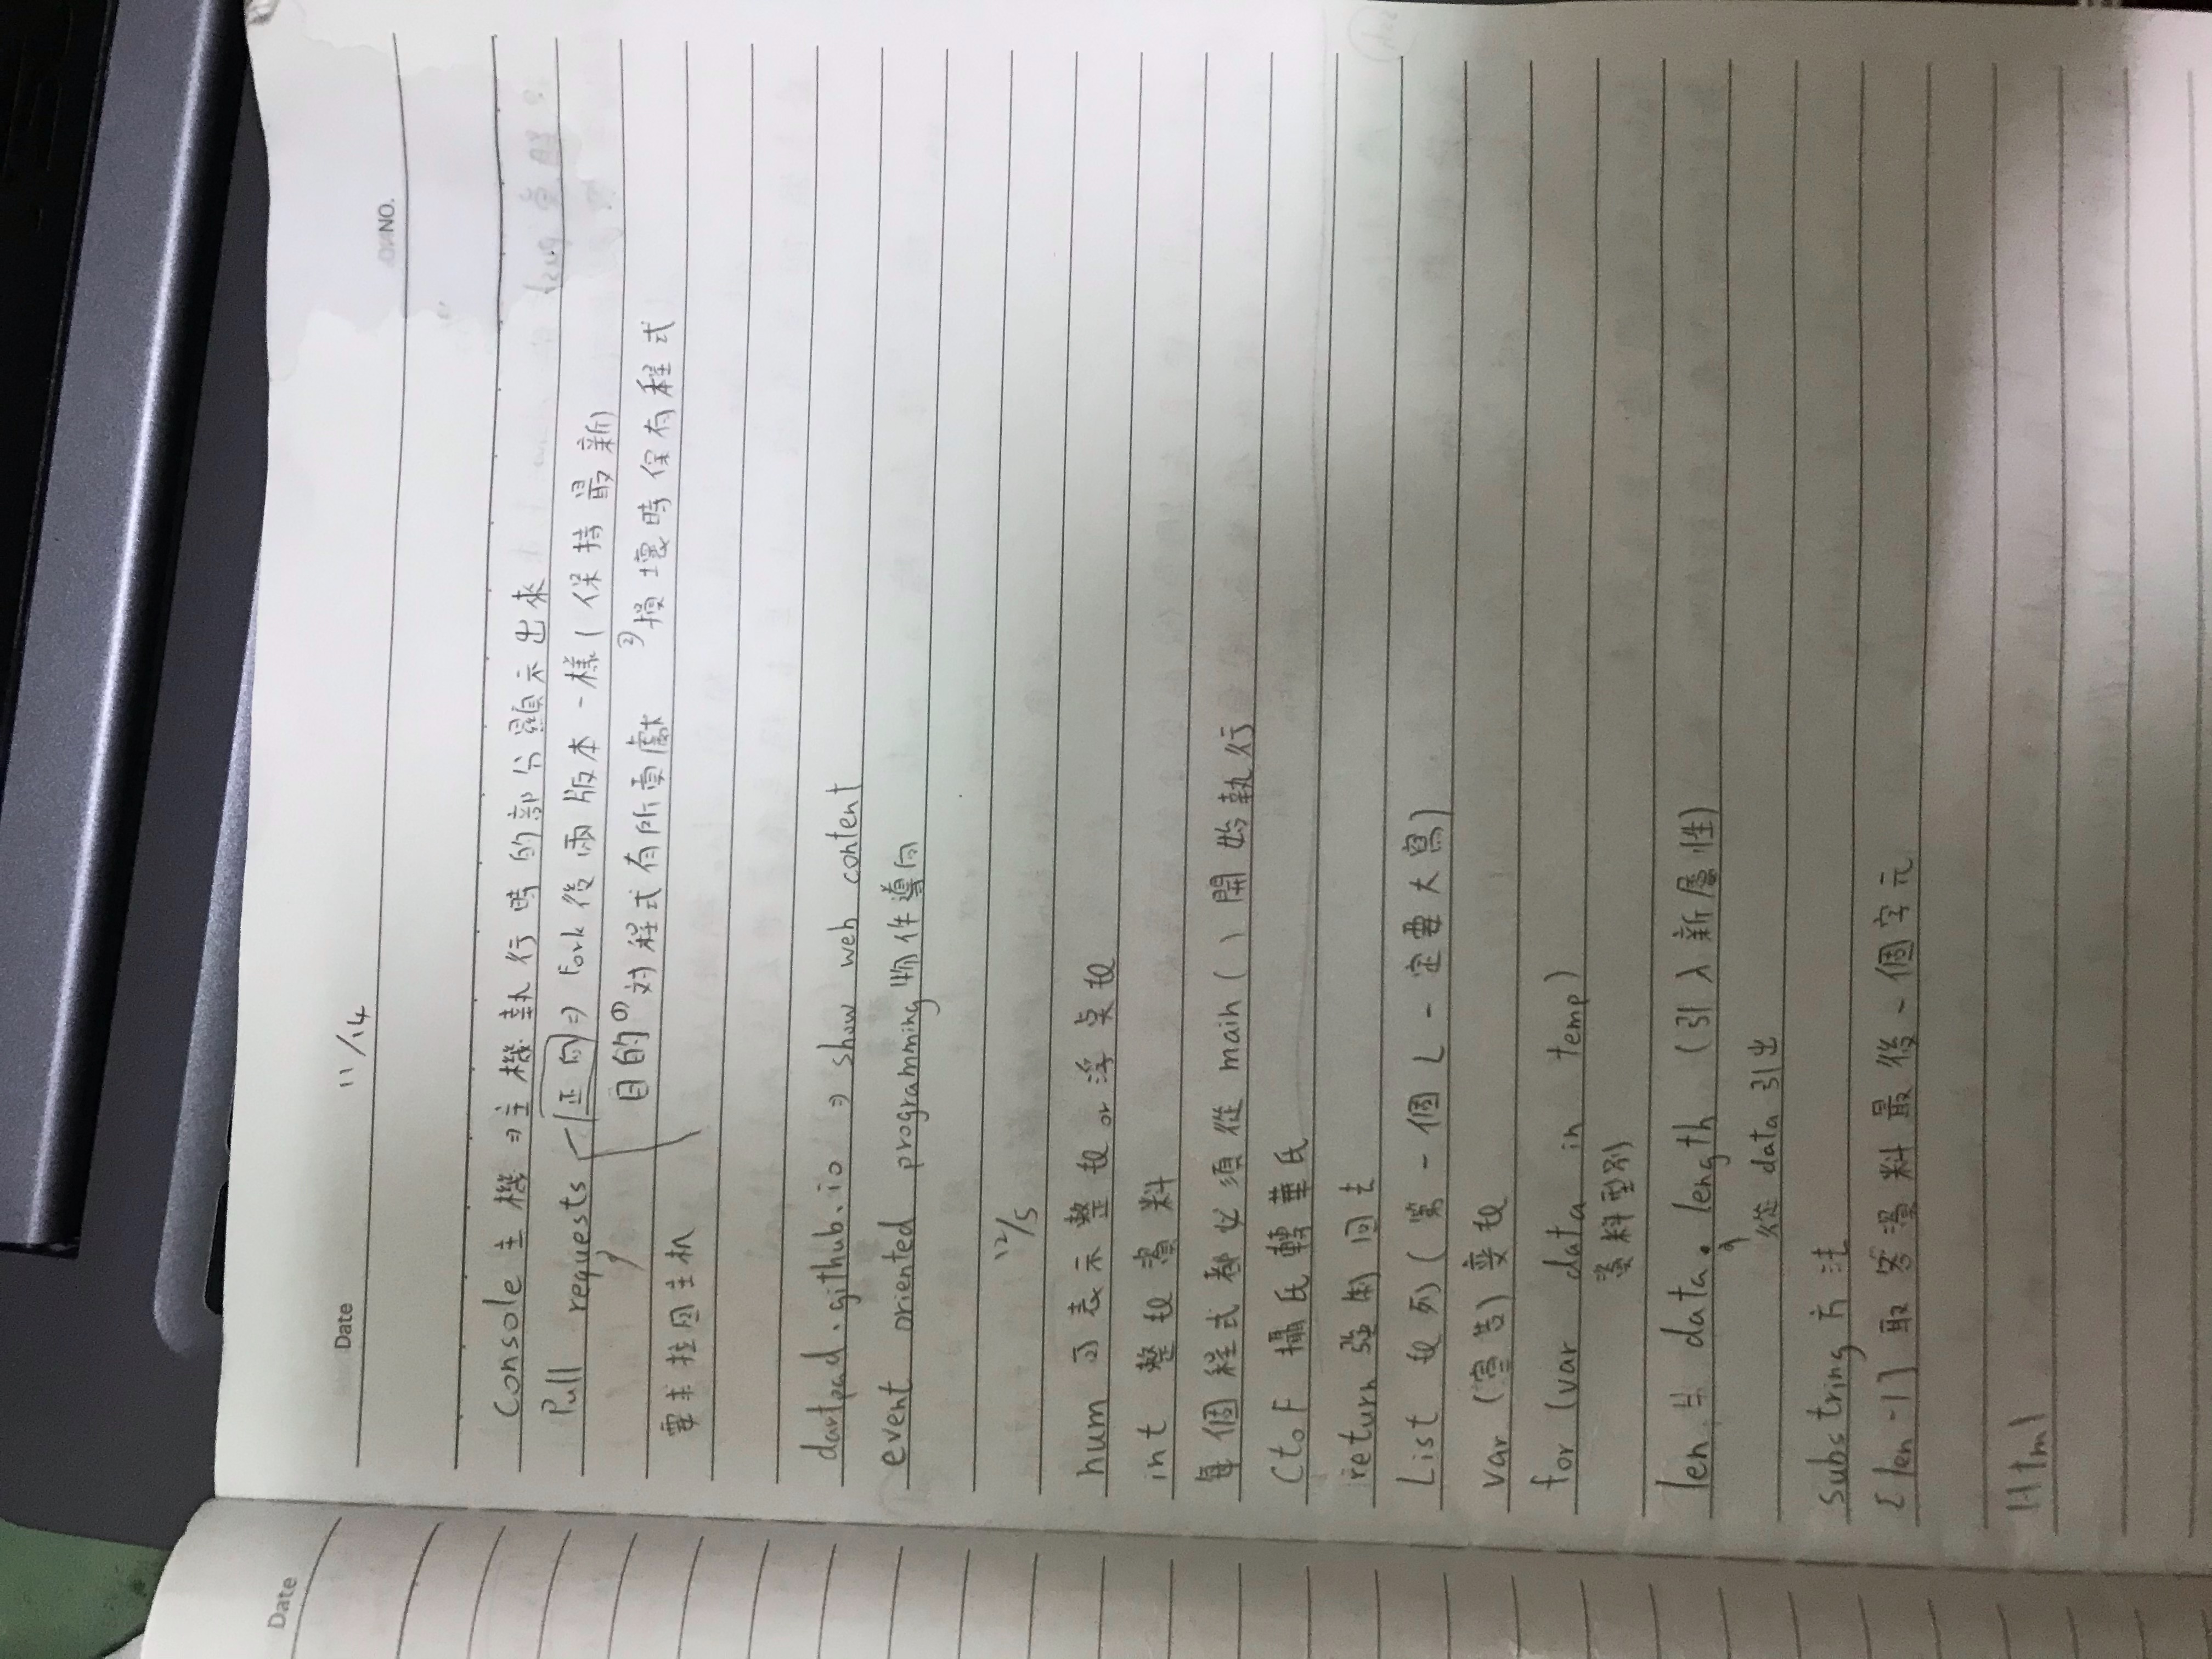 Date
Date 11/14
NO.
Console 主機 ⇒ 主機執行時的部分顯示出來
Pull requests 正向 ⇒ Fork後兩版本一樣(保持最新)
目的 1) 対程式有所貢獻 2) 損壞時保有程式
要求拉回主机
dartpad.github.io ⇒ show web content
event oriented programming 物件導向
12/5
num 可表示整数 or 浮点数
int 整数資料
每個程式都必須從 main ( ) 開始執行
CtoF 攝氏轉華氏
return 強制回去
List 数列(第一個L一定要大寫)
var (宣告) 变数
for (var data in temp)
資料型別
len = data. length (引入新屬性)
從 data 引出
substring 方法
[len -1] 取答資料最後一個字元
Html